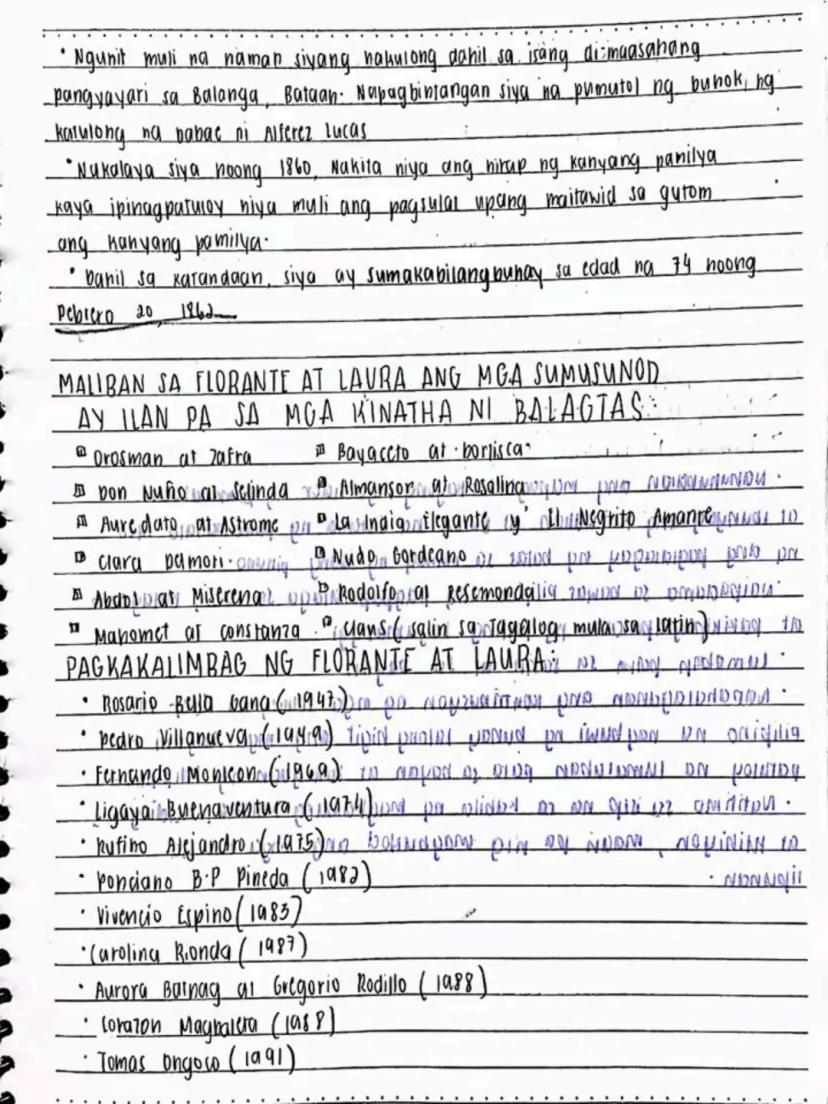 • Ngunit muli na naman siyang nakulong dahil sa isang di-maasahang
pangyayari sa Balanga, Bataan. Napagbintangan siya na pumutol ng buhok ng
katulong na babae ni Alferez Lucas
• Nakalaya siya noong 1860, Nakita niya ang hirap ng kanyang pamilya
kaya ipinagpatuloy niya muli ang pagsulat upang maitawid sa gutom
ang kanyang pamilya.
• Dahil sa katandaan, siya ay sumakabilangbuhay sa edad na 74 noong
Pebrero 20, 1862
MALIBAN SA FLORANTE AT LAURA ANG MGA SUMUSUNOD
AY ILAN PA SA MGA KINATHA NI BALAGTAS:
Orosman at Zafra
Bayaceto at Dorlisca
Don Nuño at Selinda
Almansor at Rosalina
Auredato at Astrome
La India Elegante y' El Negrito Amante
Clara Damori
Nudo Gordeano
Abdol at Miserena
Rodolfo at Resemonda
Mahomet at Constanza
(salin sa Tagalog mula sa latin)
PAGKAKALIMBAG NG FLORANTE AT LAURA:
• Rosario Bella Gana (1947)
• Pedro Villanueva (1949)
• Fernando Monleon (1969)
• Ligaya Buenaventura (1974)
• Rufino Alejandro (1975)
• Ponciano B.P Pineda (1982)
• Vivencio Espino (1983)
• Carolina Rionda (1987)
• Aurora Batnag at Gregorio Rodillo (1988)
• Corazon Magbaleta (1988)
• Tomas Ongoco (1991)